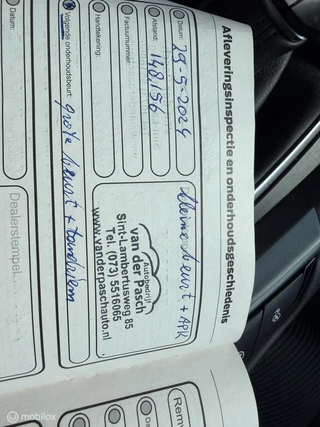 Afleveringsinspectie en onderhoudsgeschiedenis
Datum: 29-5-2024
Afstand: 148156
Factuurnummer:
Handtekening:
kleine beurt + APK
Autobedrijf
van der Pasch
Sint-Lambertusweg 85
Tel. (073) 5516065
www.vanderpaschauto.nl
Volgende onderhoudsbeurt: grote beurt + tandriem
Datum:
Dealerstempel
Rem
mobilox